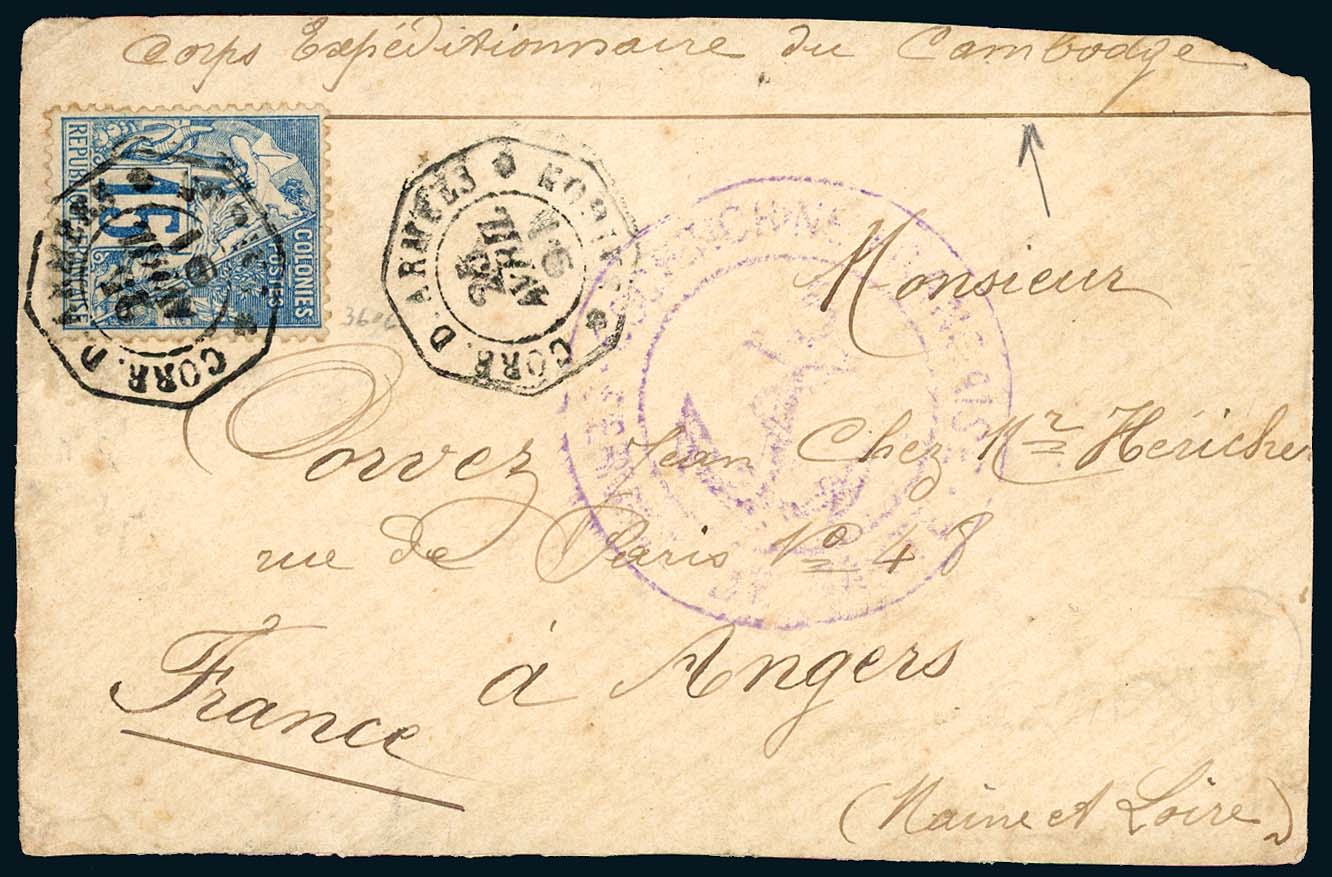 Corps Expéditionnaire du Cambodge
RÉPUBLIQUE FRANÇAISE
15
COLONIES
POSTES
CORR. D. ARMÉES
CORR. D. ARMÉES
26
AVRIL
Monsieur
Dorvez Jean Chez Mr Héricher
rue de Paris No 48
à Angers
France
(Maine et Loire)